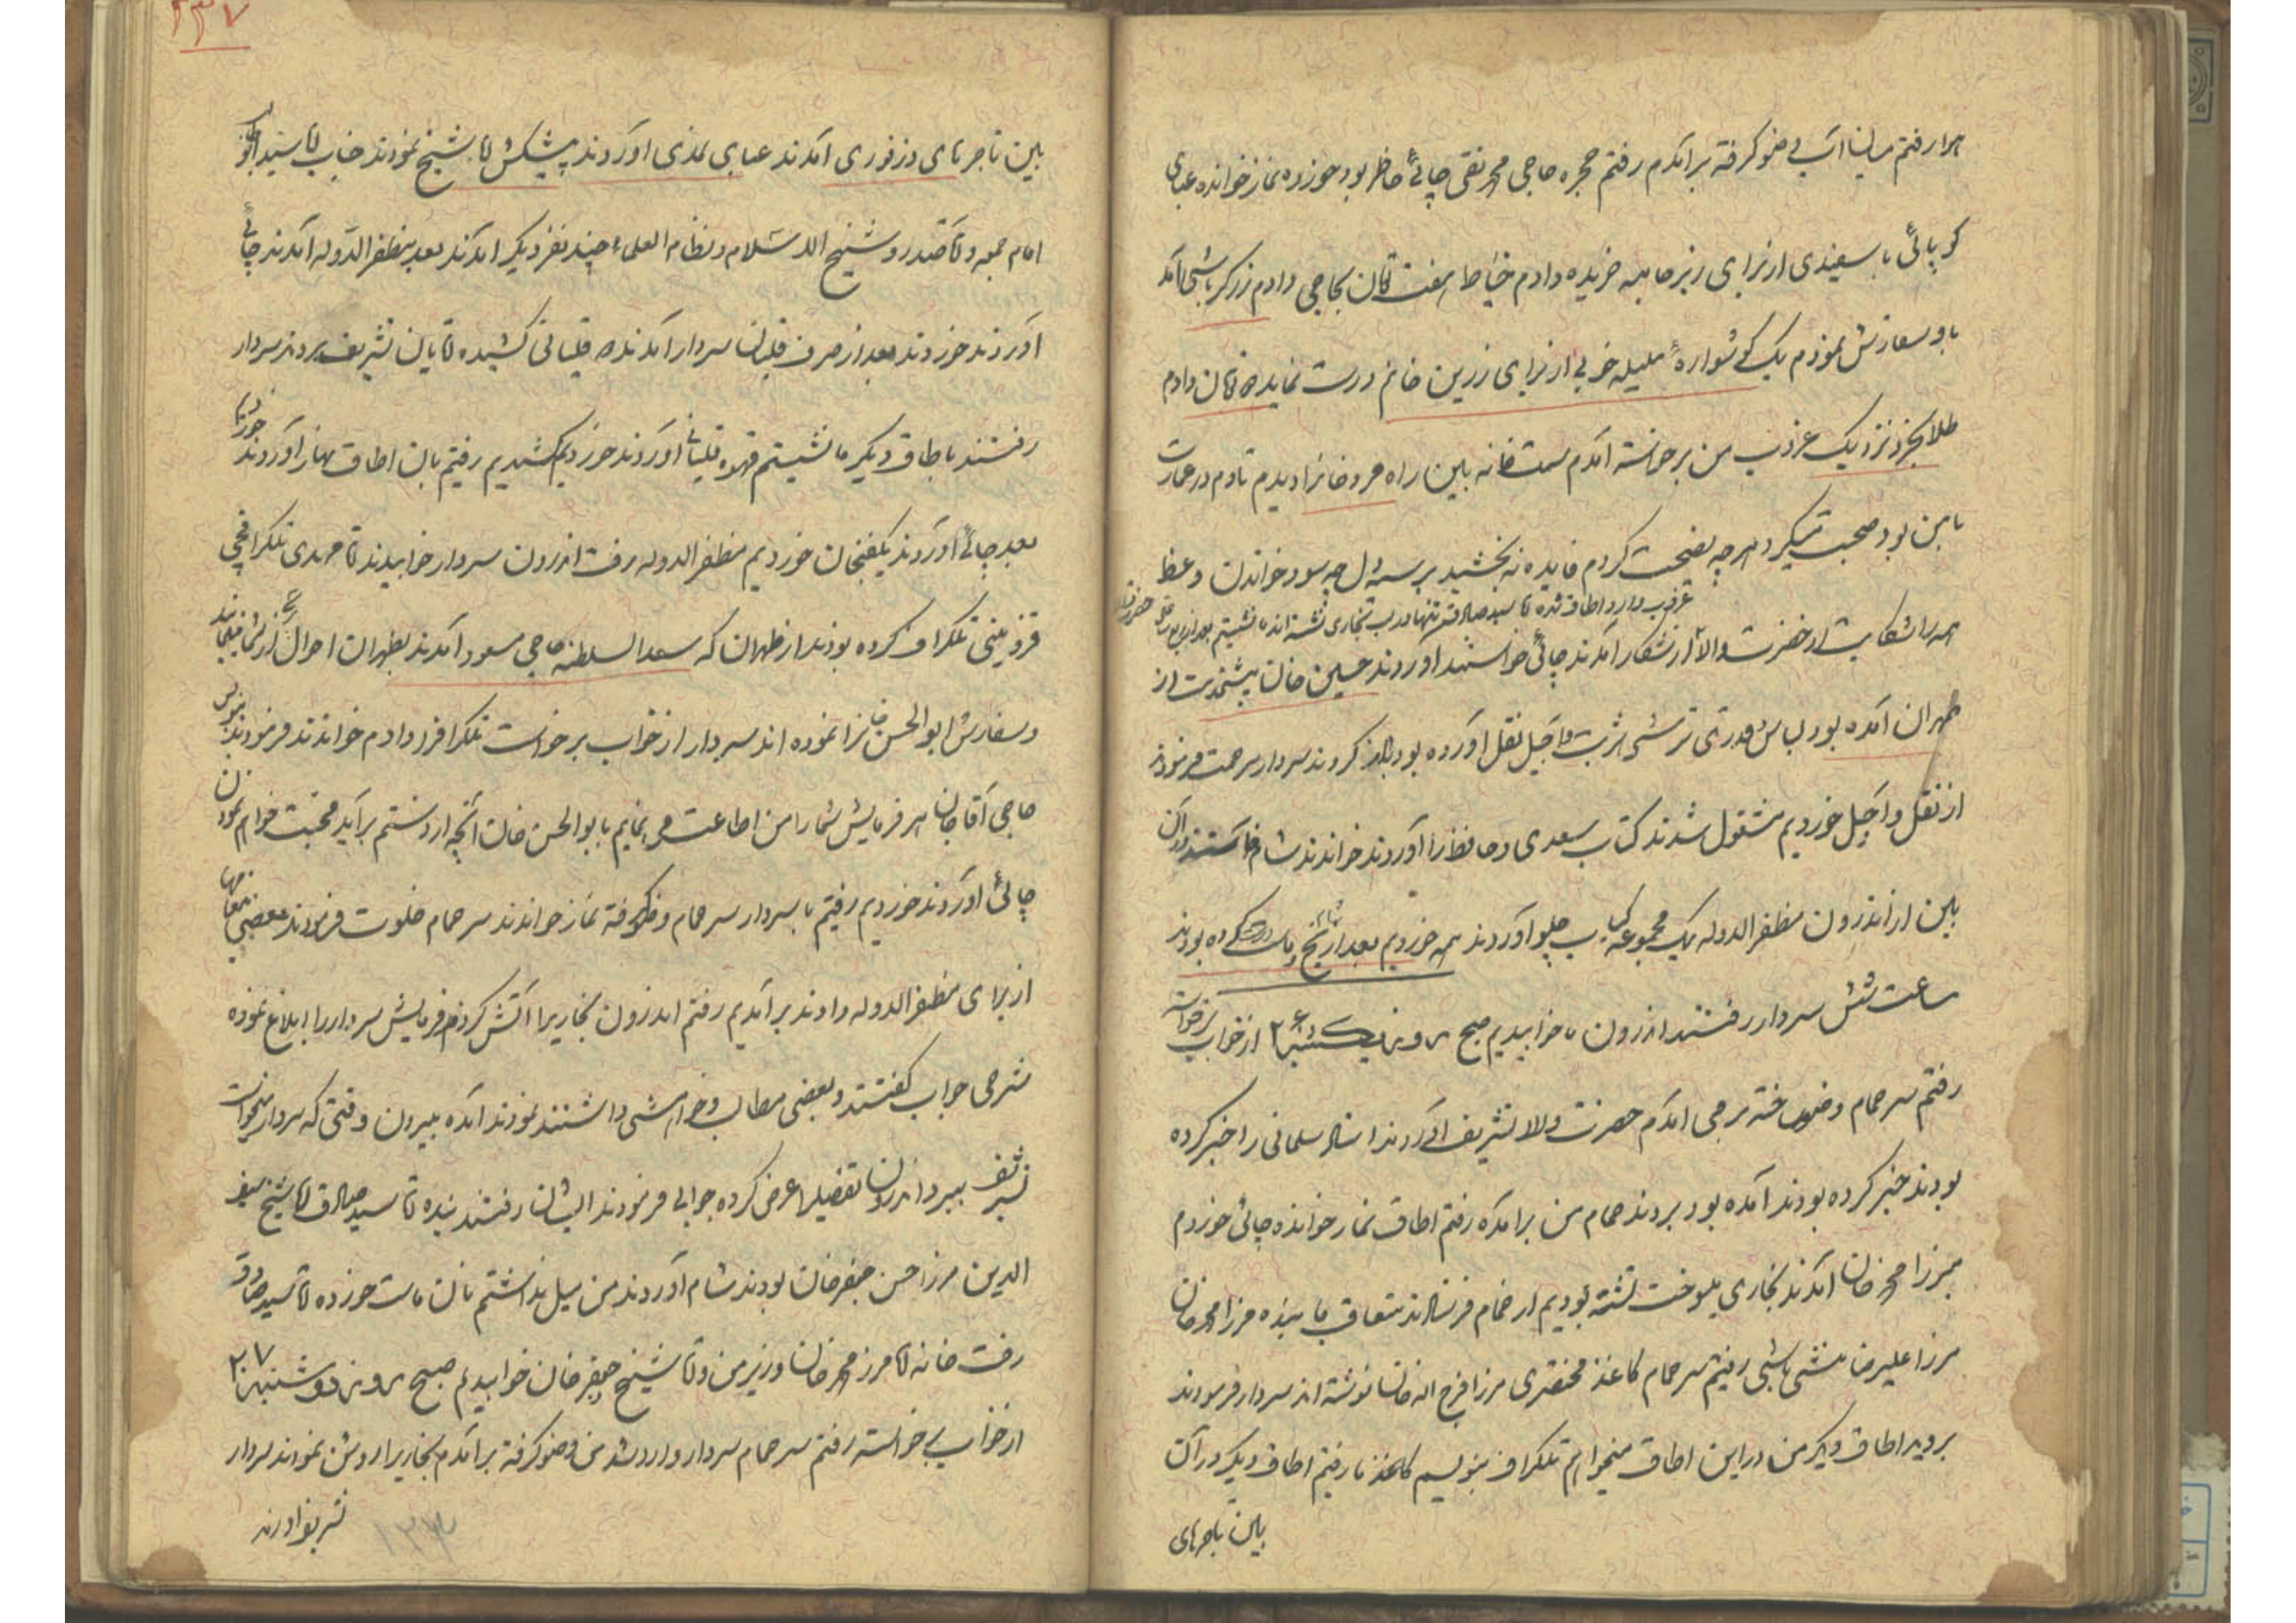 رفتم میان آب وضو گرفته برآمدم رفتم حجره حاجی محمد تقی چائی حاضر بود خورده نماز خوانده عبای
سفیدی از برای خریده دادم خیاط هفت قران بحاجی دادم زرگرباشی آمد
باو سفارش نمودم یک گوشواره ملیله خوبی از برای زرین خانم درست نماید قران دادم
نزدیک غروب من برخواسته آمدم سمت خانه بین راه را دیدم تا دم در عمارت
با من بود صحبت میکرد هرچه نصیحت کردم فایده نه بخشید بر سیه دل چه سود خواندن وعظ
غروب وارد اطاق شده آقا سید صادق تنها درب بخاری نشسته اند نشستیم بعد از ربع ساعتی حضرت
والا از شکار آمدند چائی خواستند آوردند حسین خان پیشخدمت از
طهران آمده بود لباس قدری ترشی شربت و آجیل نقل آورده بود کردند سردار مرحمت فرمودند
از نقل و آجیل خوردیم مشغول شدند کتاب سعدی و حافظ را آوردند خواندند شام خواستند در آن
بین از اندرون مظفرالدوله یک مجموعه کباب چلو آوردند همه خوردیم بعد
ساعت شش سردار رفتند اندرون ما خوابیدیم صبح روز یکشنبه ۲۶ از خواب برخواسته
رفتم سر حمام وضو ساخته برمی آمدم حضرت والا تشریف آوردند استاد سلمانی را خبر کرده
بودند خبر کرده بودند آمده بود بردند حمام من برآمده رفتم اطاق نماز خوانده چائی خوردم
میرزا محمد خان آمدند بخاری میسوخت نشسته بودیم از حمام فرستادند متعاقب ما بنده میرزا محمد خان
میرزا علیرضا منشی باشی رفتیم سر حمام کاغذ مختصری میرزا فرج اله خان نوشته اند سردار فرمودند
بروید اطاق دیگر من در این اطاق میخواهم تلگراف بنویسم کاغذ ما رفتیم اطاق دیگر در آن
بین تاجرهای
۲۳۷
بین تاجرهای دزفوری آمدند عبای نمدی آوردند پیشکش آقا شیخ نمودند جناب آقا سید ابو
امام جمعه و آقا صدر و شیخ الاسلام و نظام العلماء چند نفر دیگر آمدند بعد مظفرالدوله آمدند چائی
آوردند خوردند بعد از صرف قلیان سردار آمدند قلیانی کشیده آقایان تشریف بردند سردار
رفتند باطاق دیگر ما نشستیم قهوه قلیان آوردند خوردیم کشیدیم رفتیم بآن اطاق نهار آوردند خوردیم
بعد چائی آوردند یکفنجان خوردیم مظفرالدوله رفت اندرون سردار خوابیدند آقا مهدی تلگرافچی
قزوینی تلگراف کرده بودند از طهران که سعدالسلطنه حاجی مسعود آمدند بطهران احوال
و سفارش ابوالحسن خانرا نموده اند سردار از خواب برخواست تلگراف را دادم خواندند فرمودند بنویس
حاجی آقا جان هر فرمایش شما را من اطاعت می نمایم بابوالحسن خان آنچه از دستم برآید محبت خواهم نمود
چائی آوردند خوردیم رفتیم با سردار سر حمام وضو گرفته نماز خواندند سر حمام خلوت فرمودند بعضی پیغامها
از برای مظفرالدوله دادند برآمدیم رفتم اندرون بخاریرا آتش کردند فرمایش سردار را ابلاغ نموده
شرحی جواب گفتند و بعضی مطالب و خواهشی داشتند نمودند آمده بیرون وقتی که سردار میخواست
تشریف ببرد اندرون تفضیلرا عرض کرده جوابی فرمودند ایشان رفتند بنده آقا سید صادق آقا شیخ سیف
الدین میرزا حسن جعفرخان بودند شام آوردند من میل نداشتم نان ماست خورده آقا سید صادق
رفت خانه آقا میرزا محمد خان وزیر من و آقا شیخ جعفر خان خوابیدیم صبح روز دوشنبه ۲۷
از خواب برخواسته رفتم سر حمام سردار وارد شد من وضو گرفته برآمدم بخاریرا روشن نمودند سردار
تشریف آوردند
۱۳۳